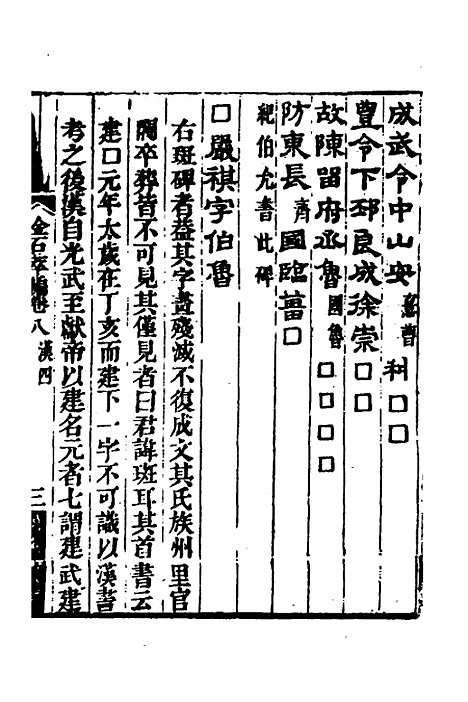 成武令中山安憙曹利□□
豐令下邳良成徐崇□□
故陳留府丞魯國魯□□□□
防東長齊國臨菑□
紀伯允書此碑
□嚴祺字伯魯
右斑碑者葢其字畫殘滅不復成文其氏族州里官
閥卒葬皆不可見其僅見者曰君諱斑耳其首書云
建□元年太歲在丁亥而建下一字不可識以漢書
考之後漢自光武至獻帝以建名元者七謂建武建
金石萃編卷八 漢四
三